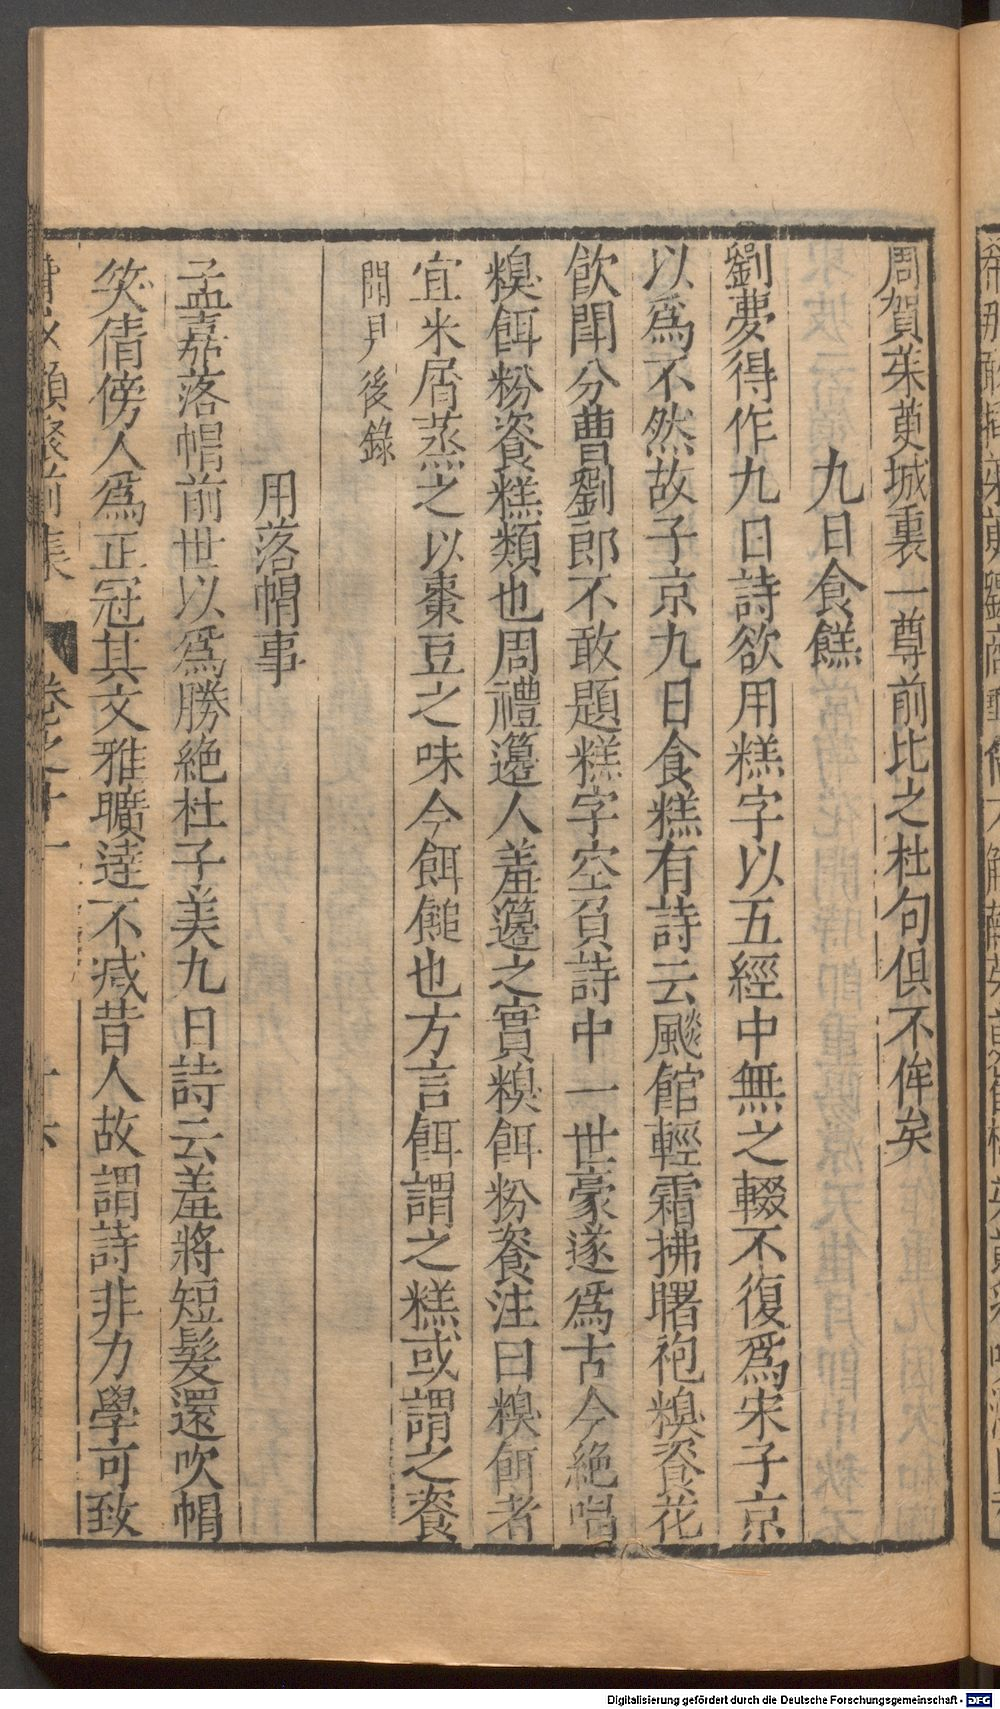 周賀茱萸城裏一尊前比之杜句俱不侔矣
九日食餻
劉夢得作九日詩欲用糕字以五經中無之輟不復爲宋子京
以爲不然故子京九日食糕有詩云飈館輕霜拂曙袍糗餈花
飲鬪分曹劉郎不敢題糕字空負詩中一世豪遂爲古今絶唱
糗餌粉餈糕類也周禮籩人羞籩之實糗餌粉餈注曰糗餌者
宜米屑蒸之以棗豆之味今餌䭔也方言餌謂之糕或謂之餈
聞見後錄
用落帽事
孟嘉落帽前世以爲勝絶杜子美九日詩云羞將短髮還吹帽
笑倩傍人爲正冠其文雅曠達不减昔人故謂詩非力學可致
類聚前集 卷之十一
Digitalisierung gefördert durch die Deutsche Forschungsgemeinschaft - DFG